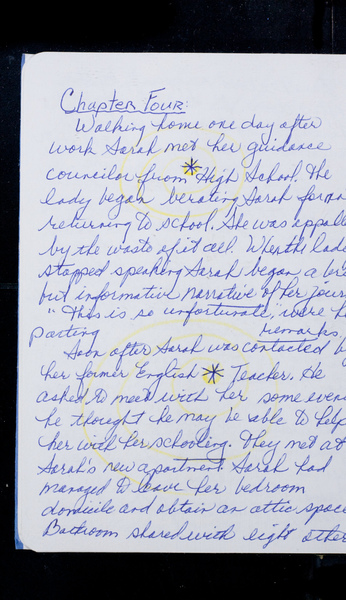 Chapter Four:
Walking home one day after
work Sarah met her guidance
councilor from * High School. The
lady began berating Sarah for not
returning to school. She was appalled
by the waste of it all. When the lady
stopped speaking Sarah began a
but informative narrative of her
"This is so unfortunate, were
parting remarks.
Soon after Sarah was contacted by
her former English * Teacher. He
asked to meet with her some
he thought he may be able to help
her with her schooling. They met at
Sarah's new apartment. Sarah had
managed to leave her bedroom
domicile and obtain an attic space
Bathroom shared with eight other